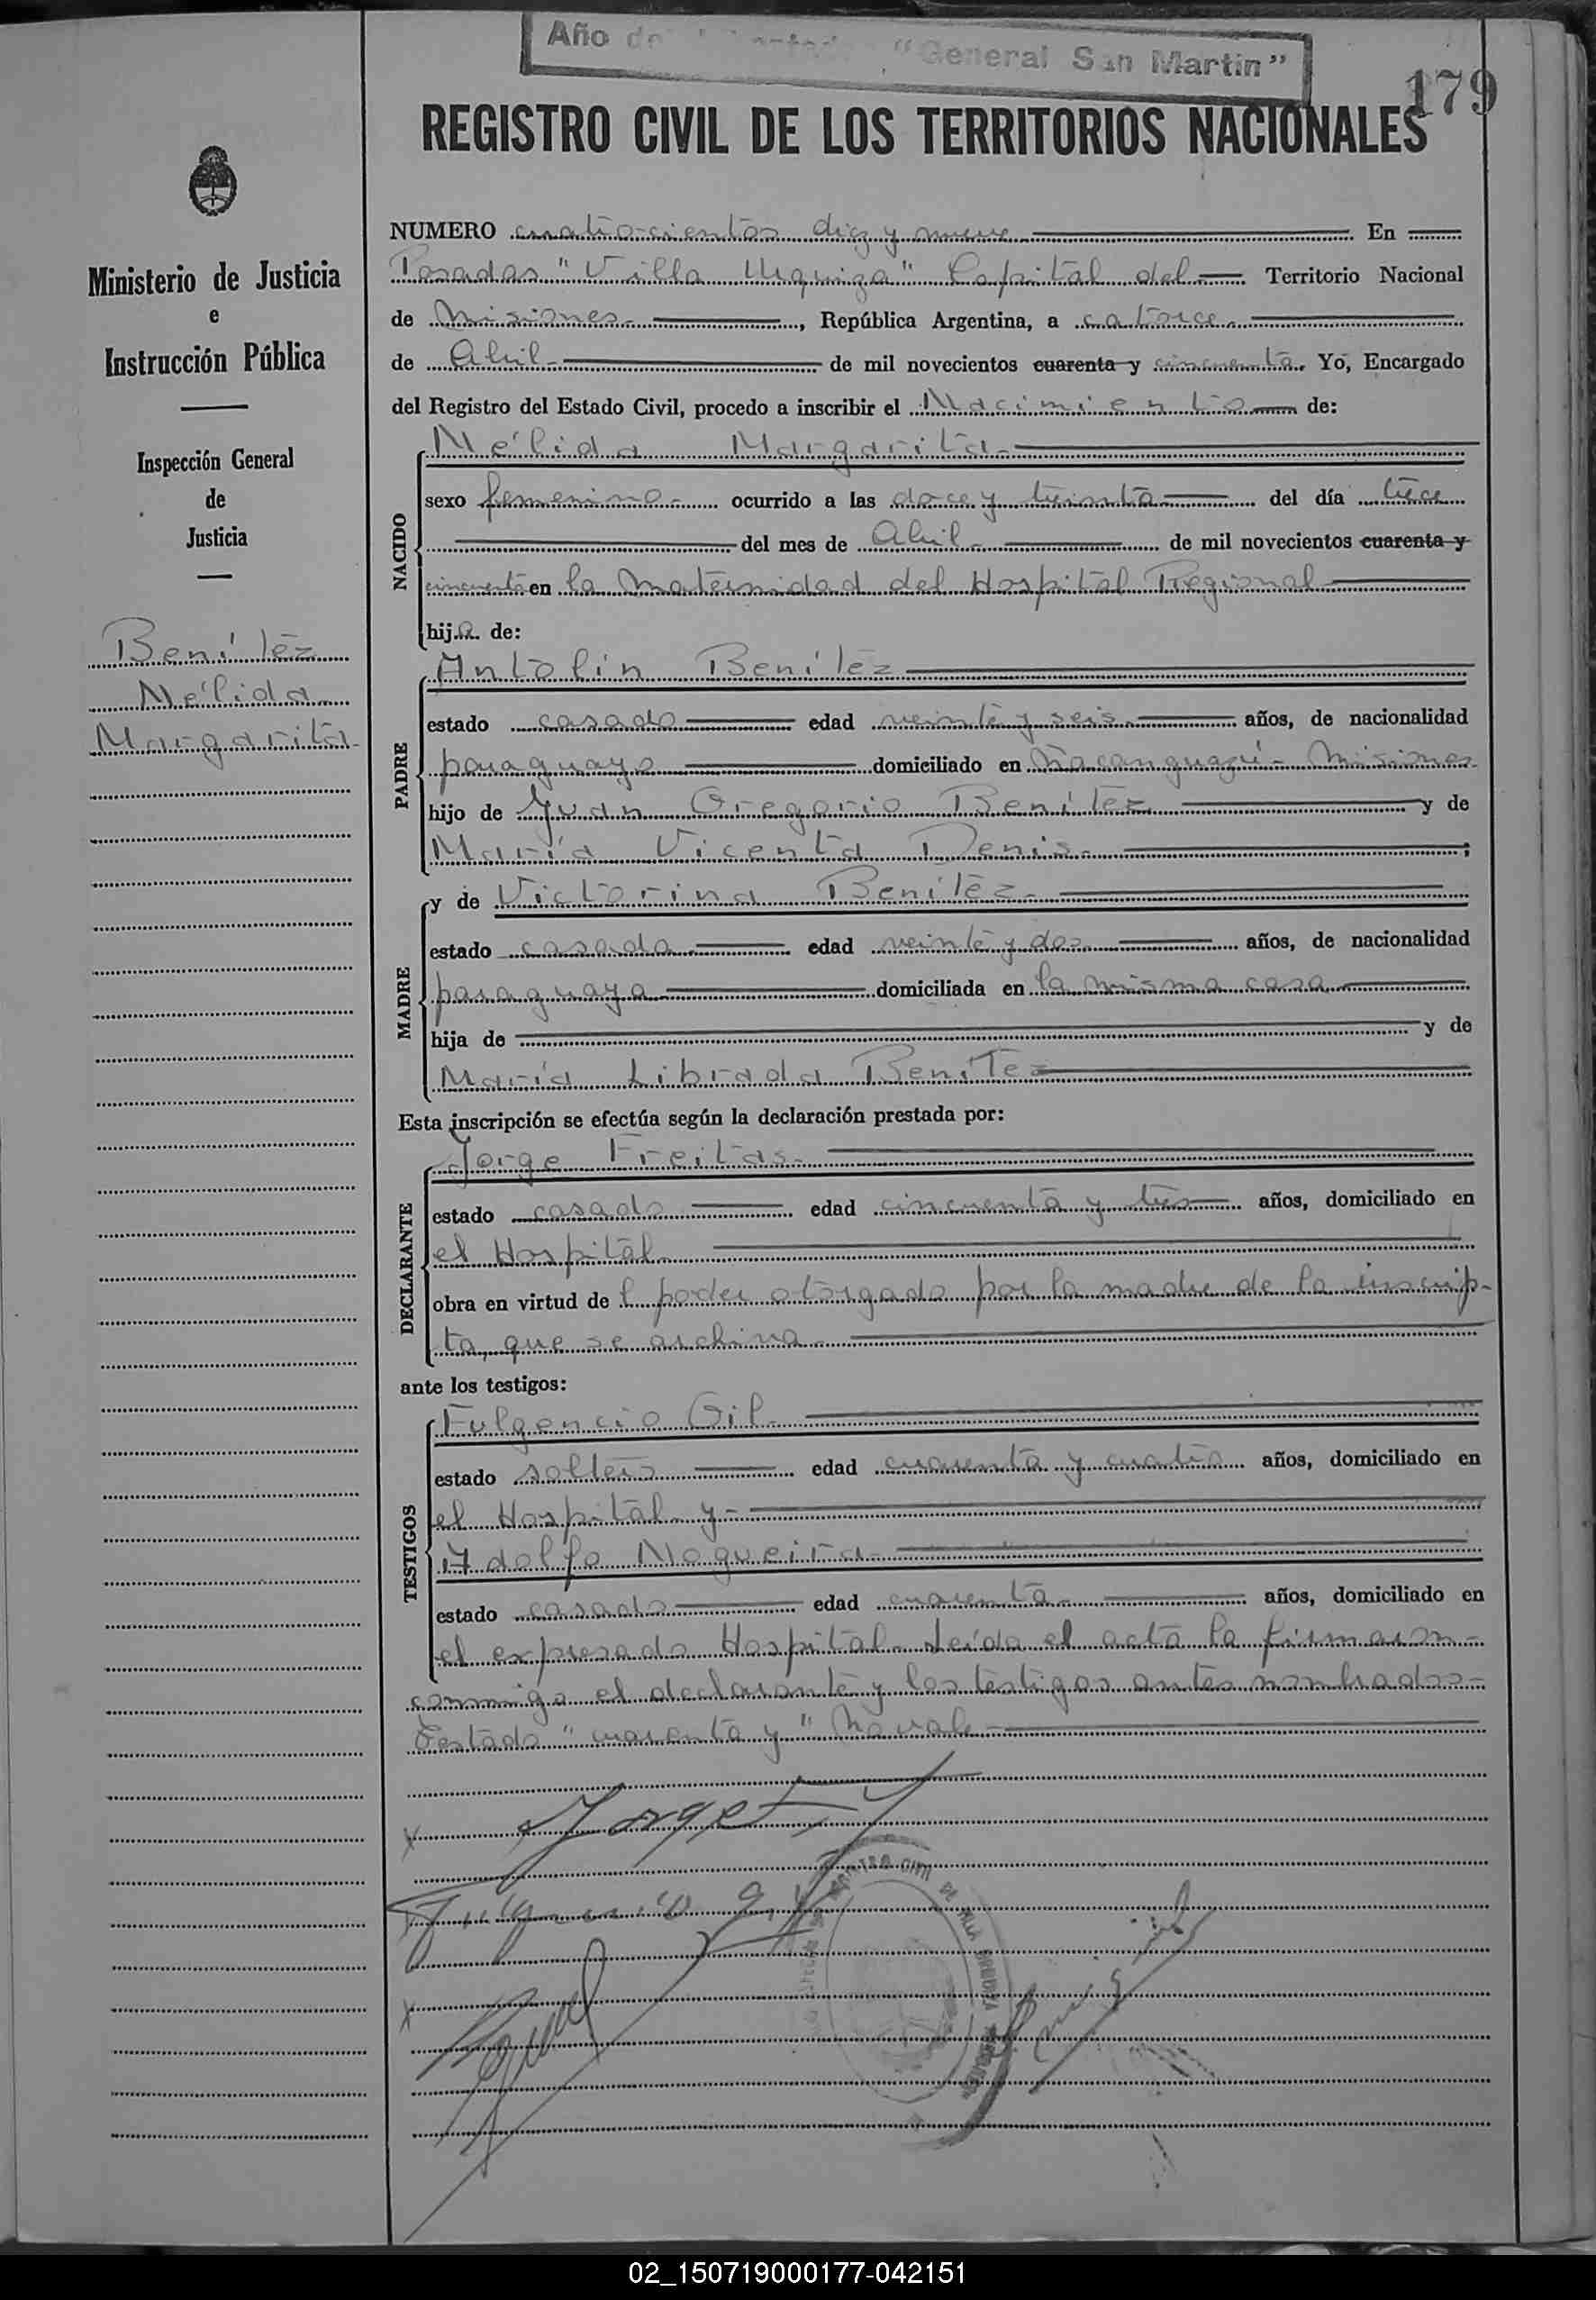 Año de "General San Martin"
179
REGISTRO CIVIL DE LOS TERRITORIOS NACIONALES
Ministerio de Justicia
e
Instrucción Pública
Inspección General
de
Justicia
Benítez
Nélida
Margarita
NUMERO cuatrocientos diez y nueve En
Posadas "Villa Urquiza" Capital del Territorio Nacional
de Misiones, República Argentina, a catorce
de Abril de mil novecientos cuarenta y cincuenta. Yo, Encargado
del Registro del Estado Civil, procedo a inscribir el Nacimiento de:
NACIDO
Nélida Margarita
sexo femenino ocurrido a las doce y treinta del día trece
del mes de Abril de mil novecientos cuarenta y
cincuenta en la Maternidad del Hospital Regional
hija de:
PADRE
Antolín Benítez
estado casado edad veinte y seis años, de nacionalidad
paraguayo domiciliado en Ñacanguazú - Misiones
hijo de Juan Gregorio Benítez y de
María Vicenta Denis ;
MADRE
y de Victorina Benítez
estado casada edad veinte y dos años, de nacionalidad
paraguaya domiciliada en la misma casa
hija de y de
María Librada Benítez
Esta inscripción se efectúa según la declaración prestada por:
DECLARANTE
Jorge Freitas
estado casado edad cincuenta y tres años, domiciliado en
el Hospital
obra en virtud de l poder otorgado por la madre de la inscrip-
ta, que se archiva
ante los testigos:
TESTIGOS
Fulgencio Gil
estado soltero edad cuarenta y cuatro años, domiciliado en
el Hospital y
Adolfo Nogueira
estado casado edad cuarenta años, domiciliado en
el expresado Hospital. Leída el acta la firmaron
conmigo el declarante y los testigos antes nombrados
Testado "cuarenta y" No vale
Jorge F
Fulgencio Gil
02_150719000177-042151